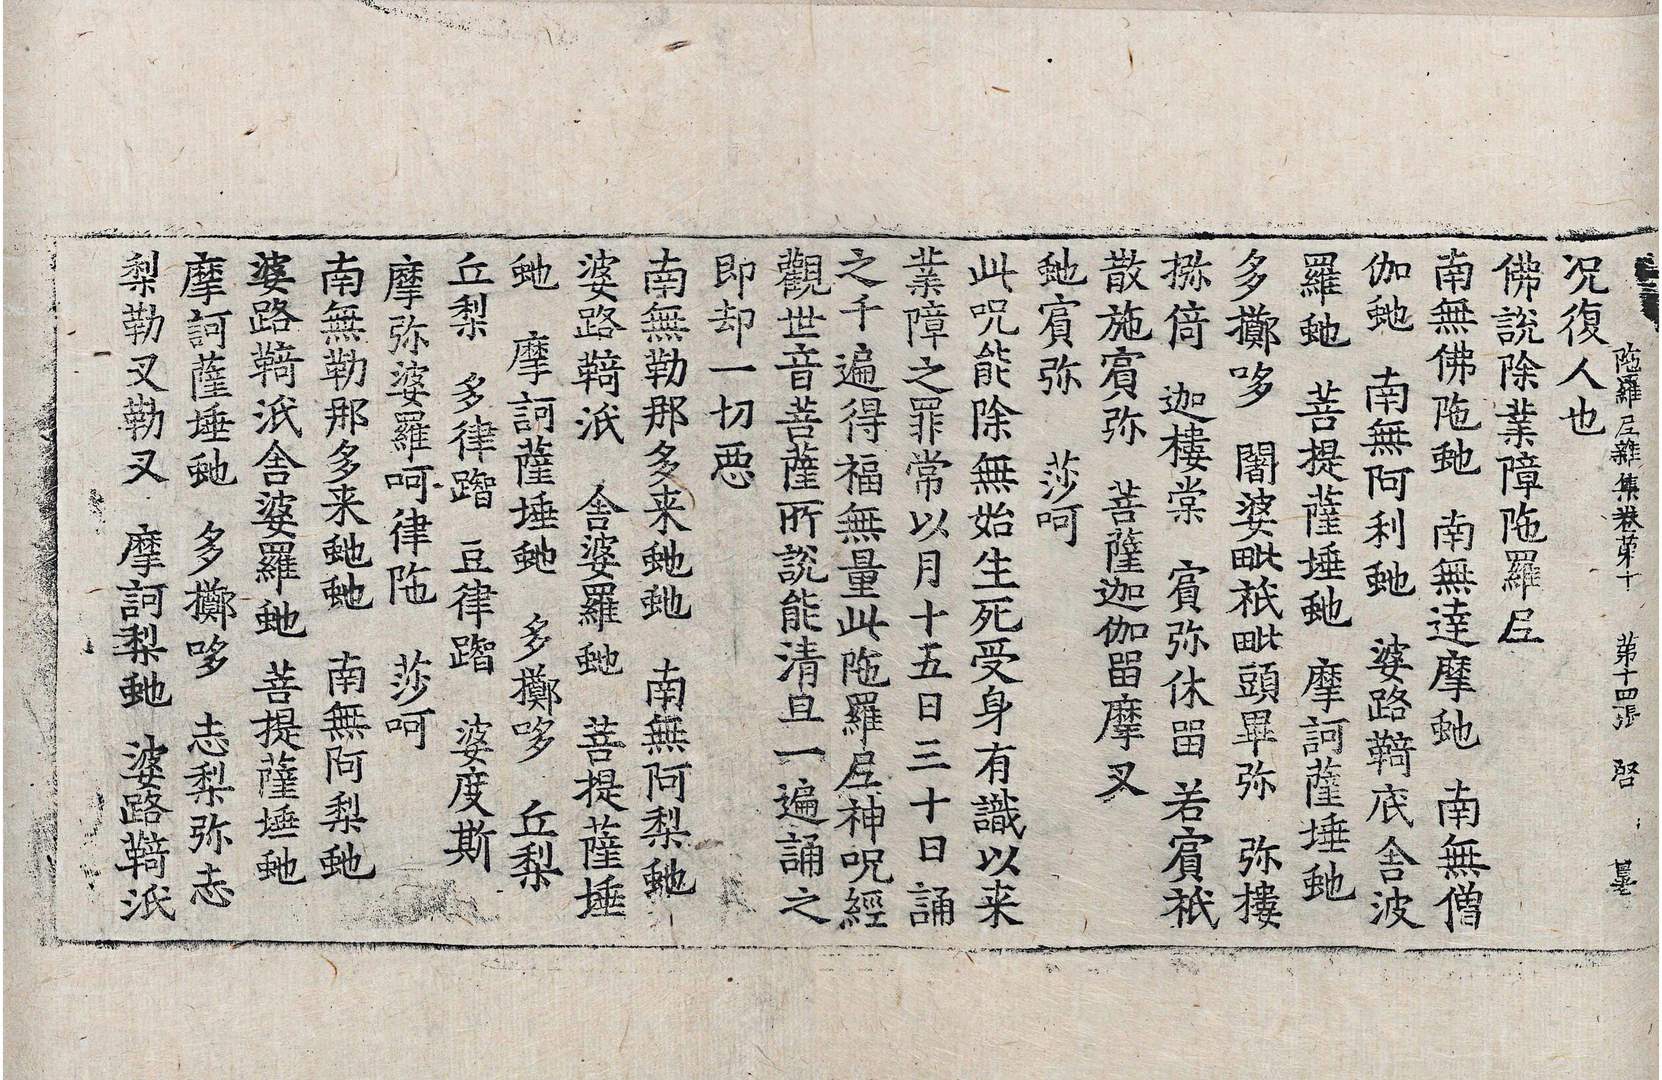 陁羅尼雜集卷第十　第十四張　啓　墨
况復人也
佛說除業障陁羅尼
南無佛陁虵　南無達摩虵　南無僧
伽虵　南無阿利虵　婆路鞊底舍波
羅虵　菩提薩埵虵　摩訶薩埵虵
多擲哆　闍婆毗祇毗頭畢弥　弥樓
捺倚　迦樓棠　賓弥休留　若賓祇
散施賓弥　菩薩迦伽留摩叉
虵賓弥　莎呵
此呪能除無始生死受身有識以来
業障之罪常以月十五日三十日誦
之千遍得福無量此陁羅尼神呪經
觀世音菩薩所說能清旦一遍誦之
即却一切惡
南無勒那多来虵虵　南無阿梨虵
婆路鞊泜　舍婆羅虵　菩提薩埵
虵　摩訶薩埵虵　多擲哆　丘梨
丘梨　多律躋　豆律躋　婆度斯
摩弥婆羅呵律陁　莎呵
南無勒那多来虵虵　南無阿梨虵
婆路鞊泜舍婆羅虵　菩提薩埵虵
摩訶薩埵虵　多擲哆　志梨弥志
梨勒叉勒叉　摩訶梨虵　婆路鞊泜